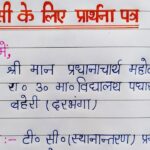 सी के लिए प्रार्थना पत्र
में,
श्री मान प्रधानाचार्य महो
रा० उ० मा० विद्यालय पचा
बहेरी (दरभंगा)
:- टी० सी० (स्थानान्तरण) प्र